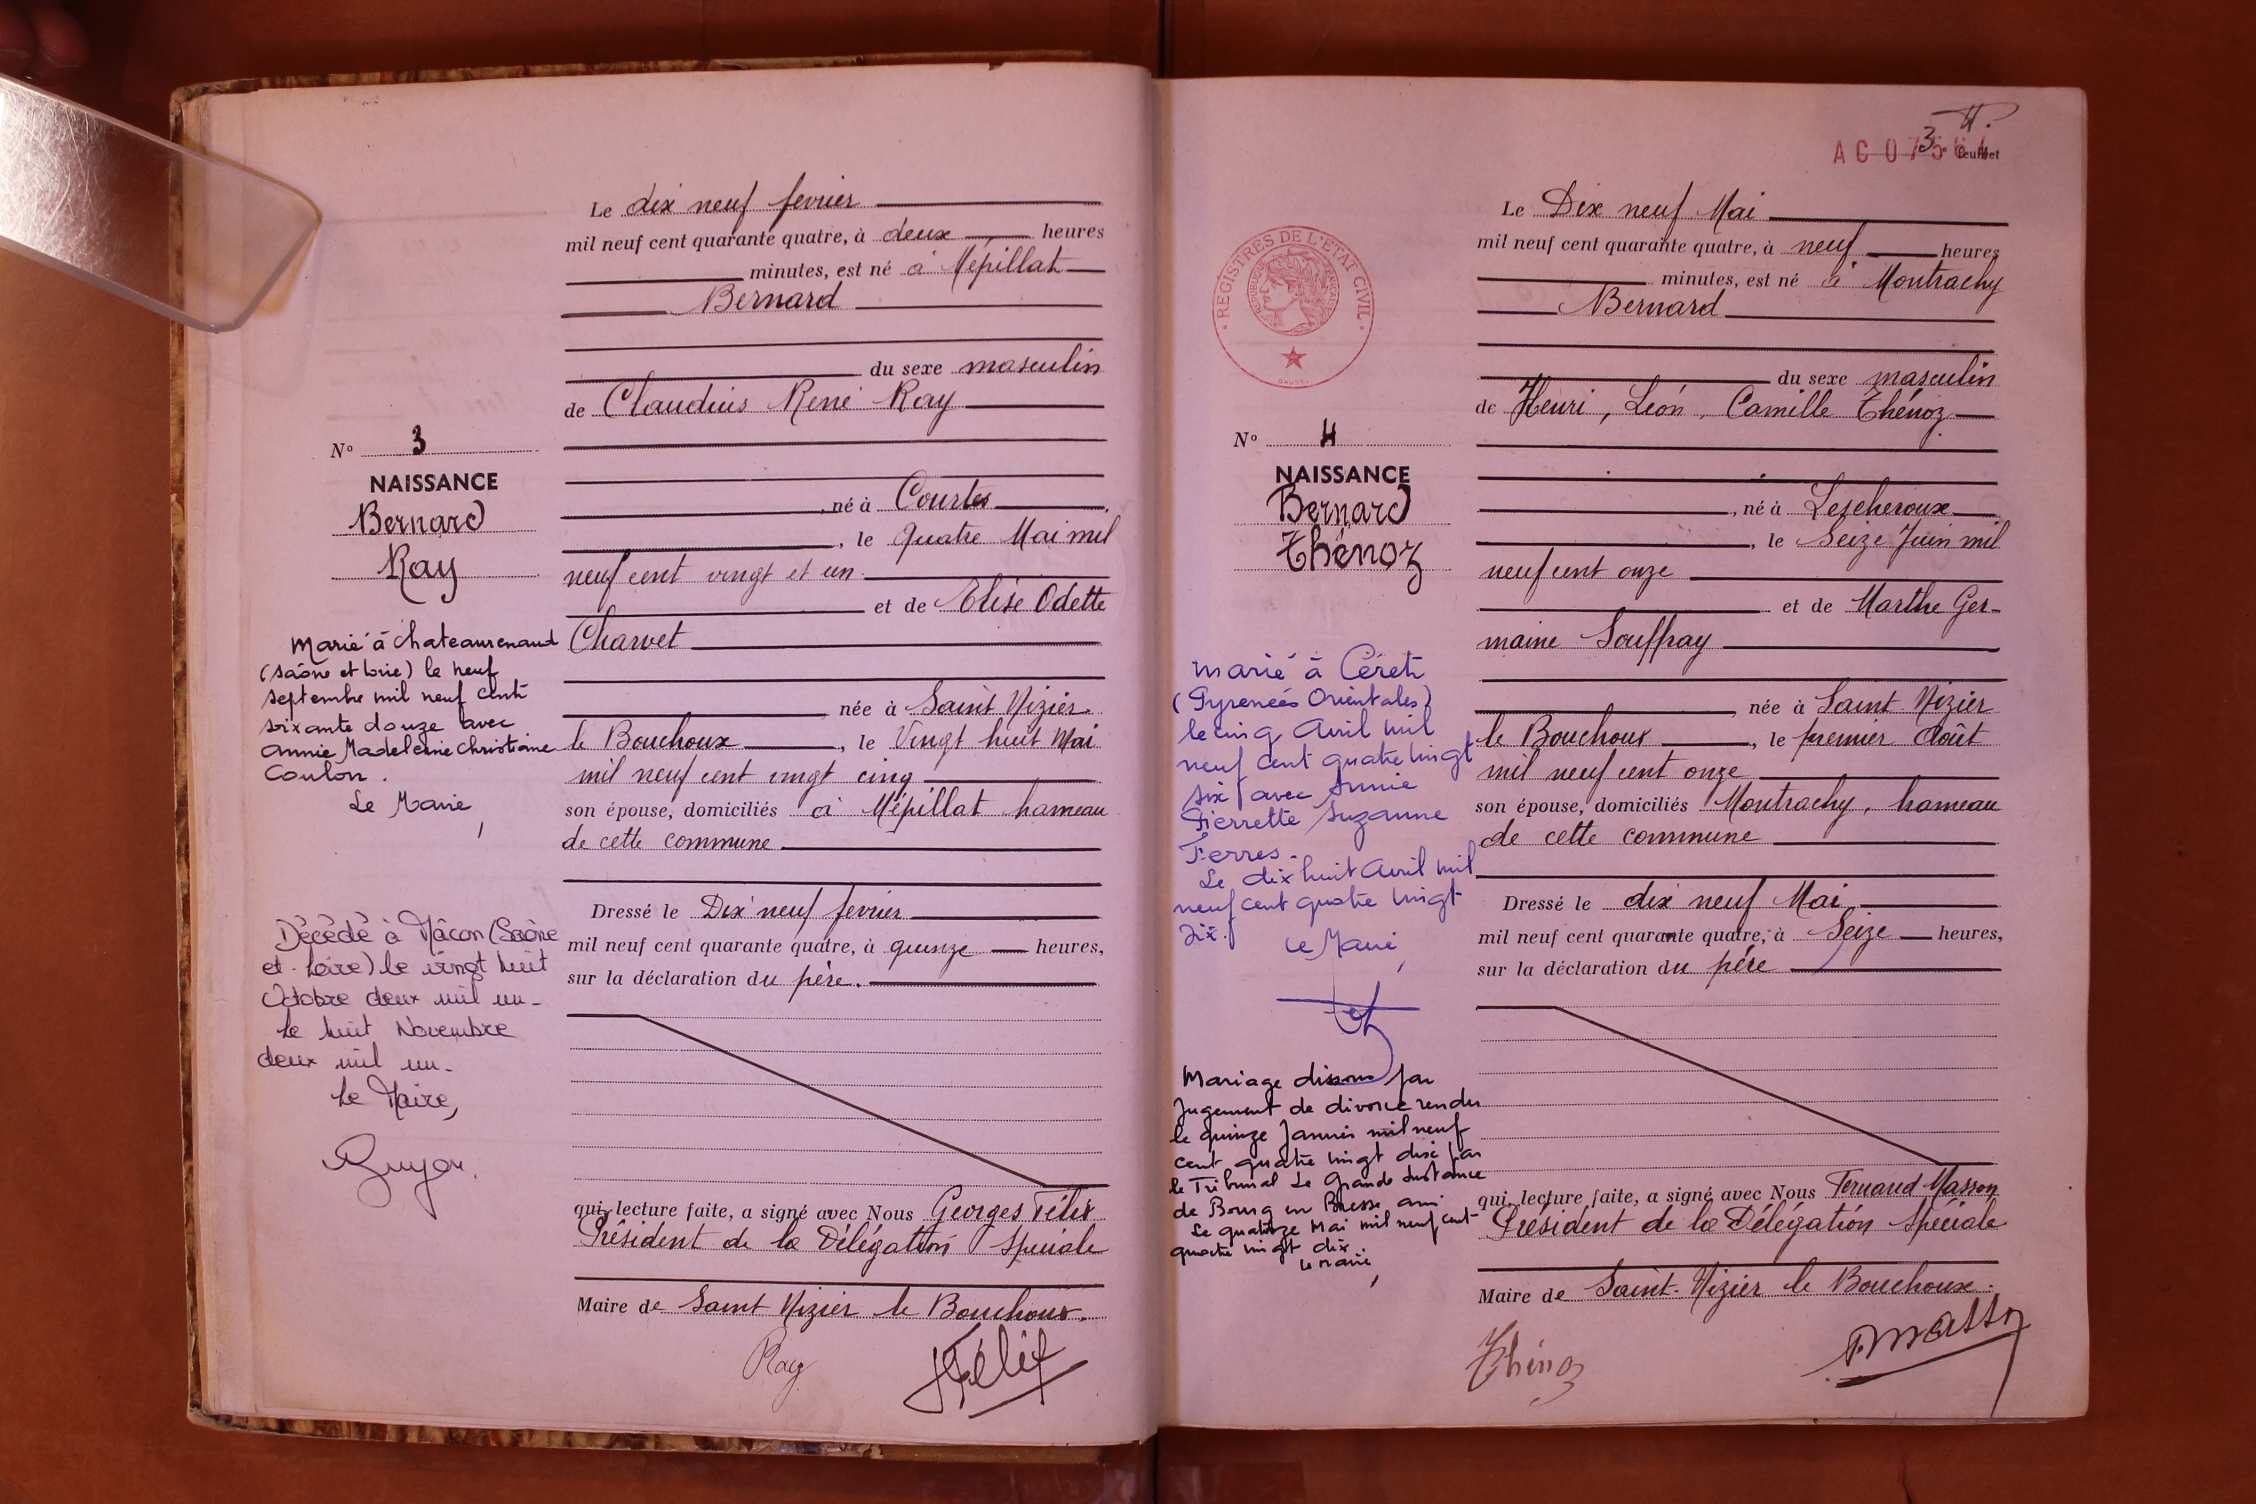 Le dix neuf fevrier
mil neuf cent quarante quatre, à deux heures
minutes, est né à Mépillat
Bernard
du sexe masculin
de Claudius René Ray
né à Courtes
, le quatre Mai mil
neuf cent vingt et un
et de Elise Odette
Charvet
née à Saint Nizier
le Bouchoux, le Vingt huit Mai
mil neuf cent vingt cinq
son épouse, domiciliés à Mépillat hameau
de cette commune
Dressé le Dix neuf fevrier
mil neuf cent quarante quatre, à quinze heures,
sur la déclaration du père.
qui, lecture faite, a signé avec Nous Georges Félix
Président de la Délégation Spéciale
Maire de Saint Nizier le Bouchoux.
Ray
Félix
No 3
NAISSANCE
Bernard
Ray
Marié à Chateaurenaud
(Saône et Loire) le neuf
septembre mil neuf cent
soixante douze avec
Annie Madeleine Christiane
Coulon.
Le Maire,
Décédé à Mâcon (Saône
et Loire) le vingt huit
Octobre deux mil un-
Le huit Novembre
deux mil un-
Le Maire,
4.
3e feuillet
AC 07564
Le Dix neuf Mai
mil neuf cent quarante quatre, à neuf heures
minutes, est né à Montrachy
Bernard
du sexe masculin
de Henri, Léon, Camille Thénoz
, né à Lescheroux
, le Seize Juin mil
neuf cent onze
et de Marthe Ger-
maine Souffray
née à Saint Nizier
le Bouchoux, le premier Août
mil neuf cent onze
son épouse, domiciliés Montrachy, hameau
de cette commune
Dressé le dix neuf Mai
mil neuf cent quarante quatre, à Seize heures,
sur la déclaration du père
qui, lecture faite, a signé avec Nous Fernand Masson
Président de la Délégation Spéciale
Maire de Saint-Nizier le Bouchoux.
Thénoz
F. Masson
REGISTRES DE L'ETAT CIVIL
REPUBLIQUE FRANÇAISE
No 4
NAISSANCE
Bernard
Thénoz
Marié à Céret
(Pyrenées Orientales)
le cinq Avril mil
neuf cent quatre vingt
six avec Annie
Pierrette Suzanne
Ferres.
Le dix huit Avril mil
neuf cent quatre vingt
six.
Le Maire,
Mariage dissous par
Jugement de divorce rendu
le quinze Janvier mil neuf
cent quatre vingt dix par
le Tribunal de Grande Instance
de Bourg en Bresse Ain
Le quatorze Mai mil neuf cent
quatre vingt dix.
Le Maire,